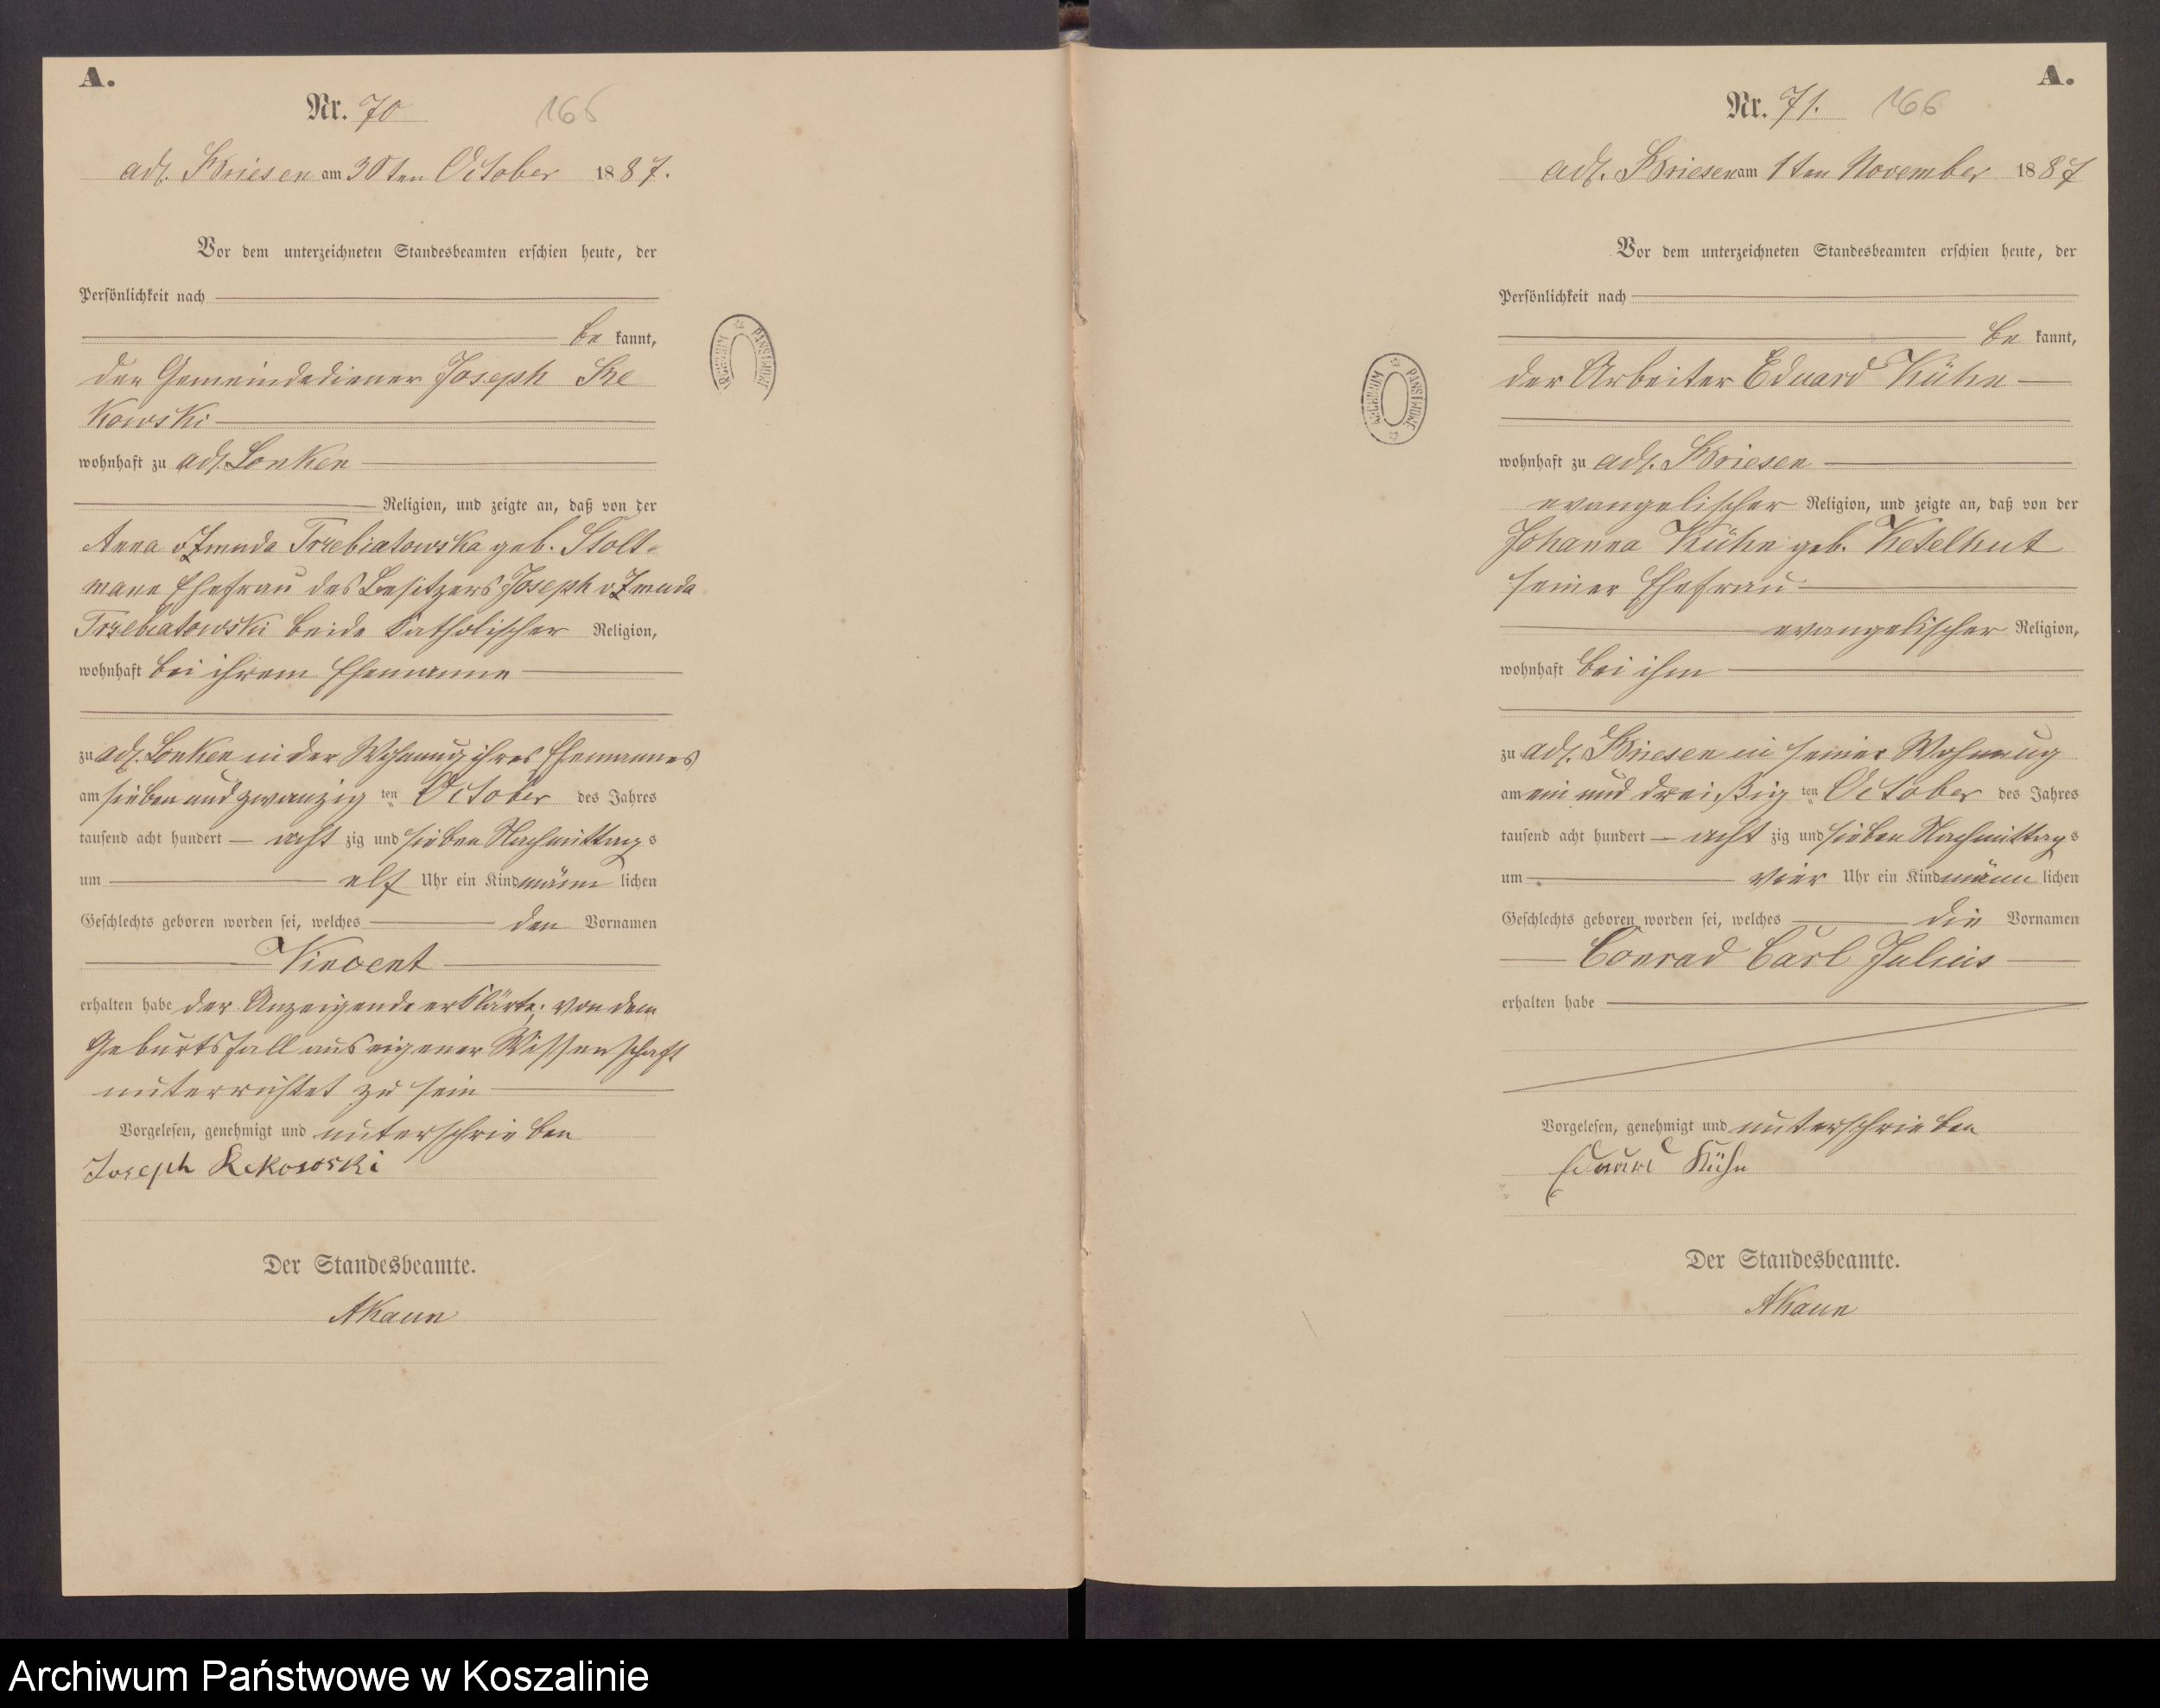 A.
Nr. 70
165
adl. Briesen am 30ten October 1887.
Vor dem unterzeichneten Standesbeamten erschien heute, der
Persönlichkeit nach
be kannt,
der Gemeindediener Joseph
kowski
wohnhaft zu adl. Lonken
Religion, und zeigte an, daß von der
Anna v Zmuda Trzebiatowska geb. Stolt-
mann Ehefrau des Besitzers Joseph v Zmuda
Trzebiatowski beide katholischer Religion,
wohnhaft bei ihrem Ehemanne
zu adl. Lonken in der Wohnung ihres Ehemannes
am sieben und zwanzig ten October des Jahres
tausend acht hundert acht zig und sieben Nachmittags
um elf Uhr ein Kind männ lichen
Geschlechts geboren worden sei, welches den Vornamen
Vincent
erhalten habe der Anzeigende erklärte, von dem
Geburtsfall aus eigener Wissenschaft
unterrichtet zu sein
Vorgelesen, genehmigt und unterschrieben
Joseph
Der Standesbeamte.
AKaun
ARCHIWUM PAŃSTWOWE
A.
Nr. 71.
166
adl. Briesen am 1ten November 1887
Vor dem unterzeichneten Standesbeamten erschien heute, der
Persönlichkeit nach
be kannt,
der Arbeiter Eduard Kühn
wohnhaft zu adl. Briesen
evangelischer Religion, und zeigte an, daß von der
Johanna Kühn geb. Ketelhut
seiner Ehefrau
evangelischer Religion,
wohnhaft bei ihm
zu adl. Briesen in seiner Wohnung
am ein und dreißig ten October des Jahres
tausend acht hundert acht zig und sieben Nachmittags
um vier Uhr ein Kind männ lichen
Geschlechts geboren worden sei, welches die Vornamen
Conrad Carl Julius
erhalten habe
Vorgelesen, genehmigt und unterschrieben
Eduard Kühn
Der Standesbeamte.
AKaun
ARCHIWUM PAŃSTWOWE
Archiwum Państwowe w Koszalinie